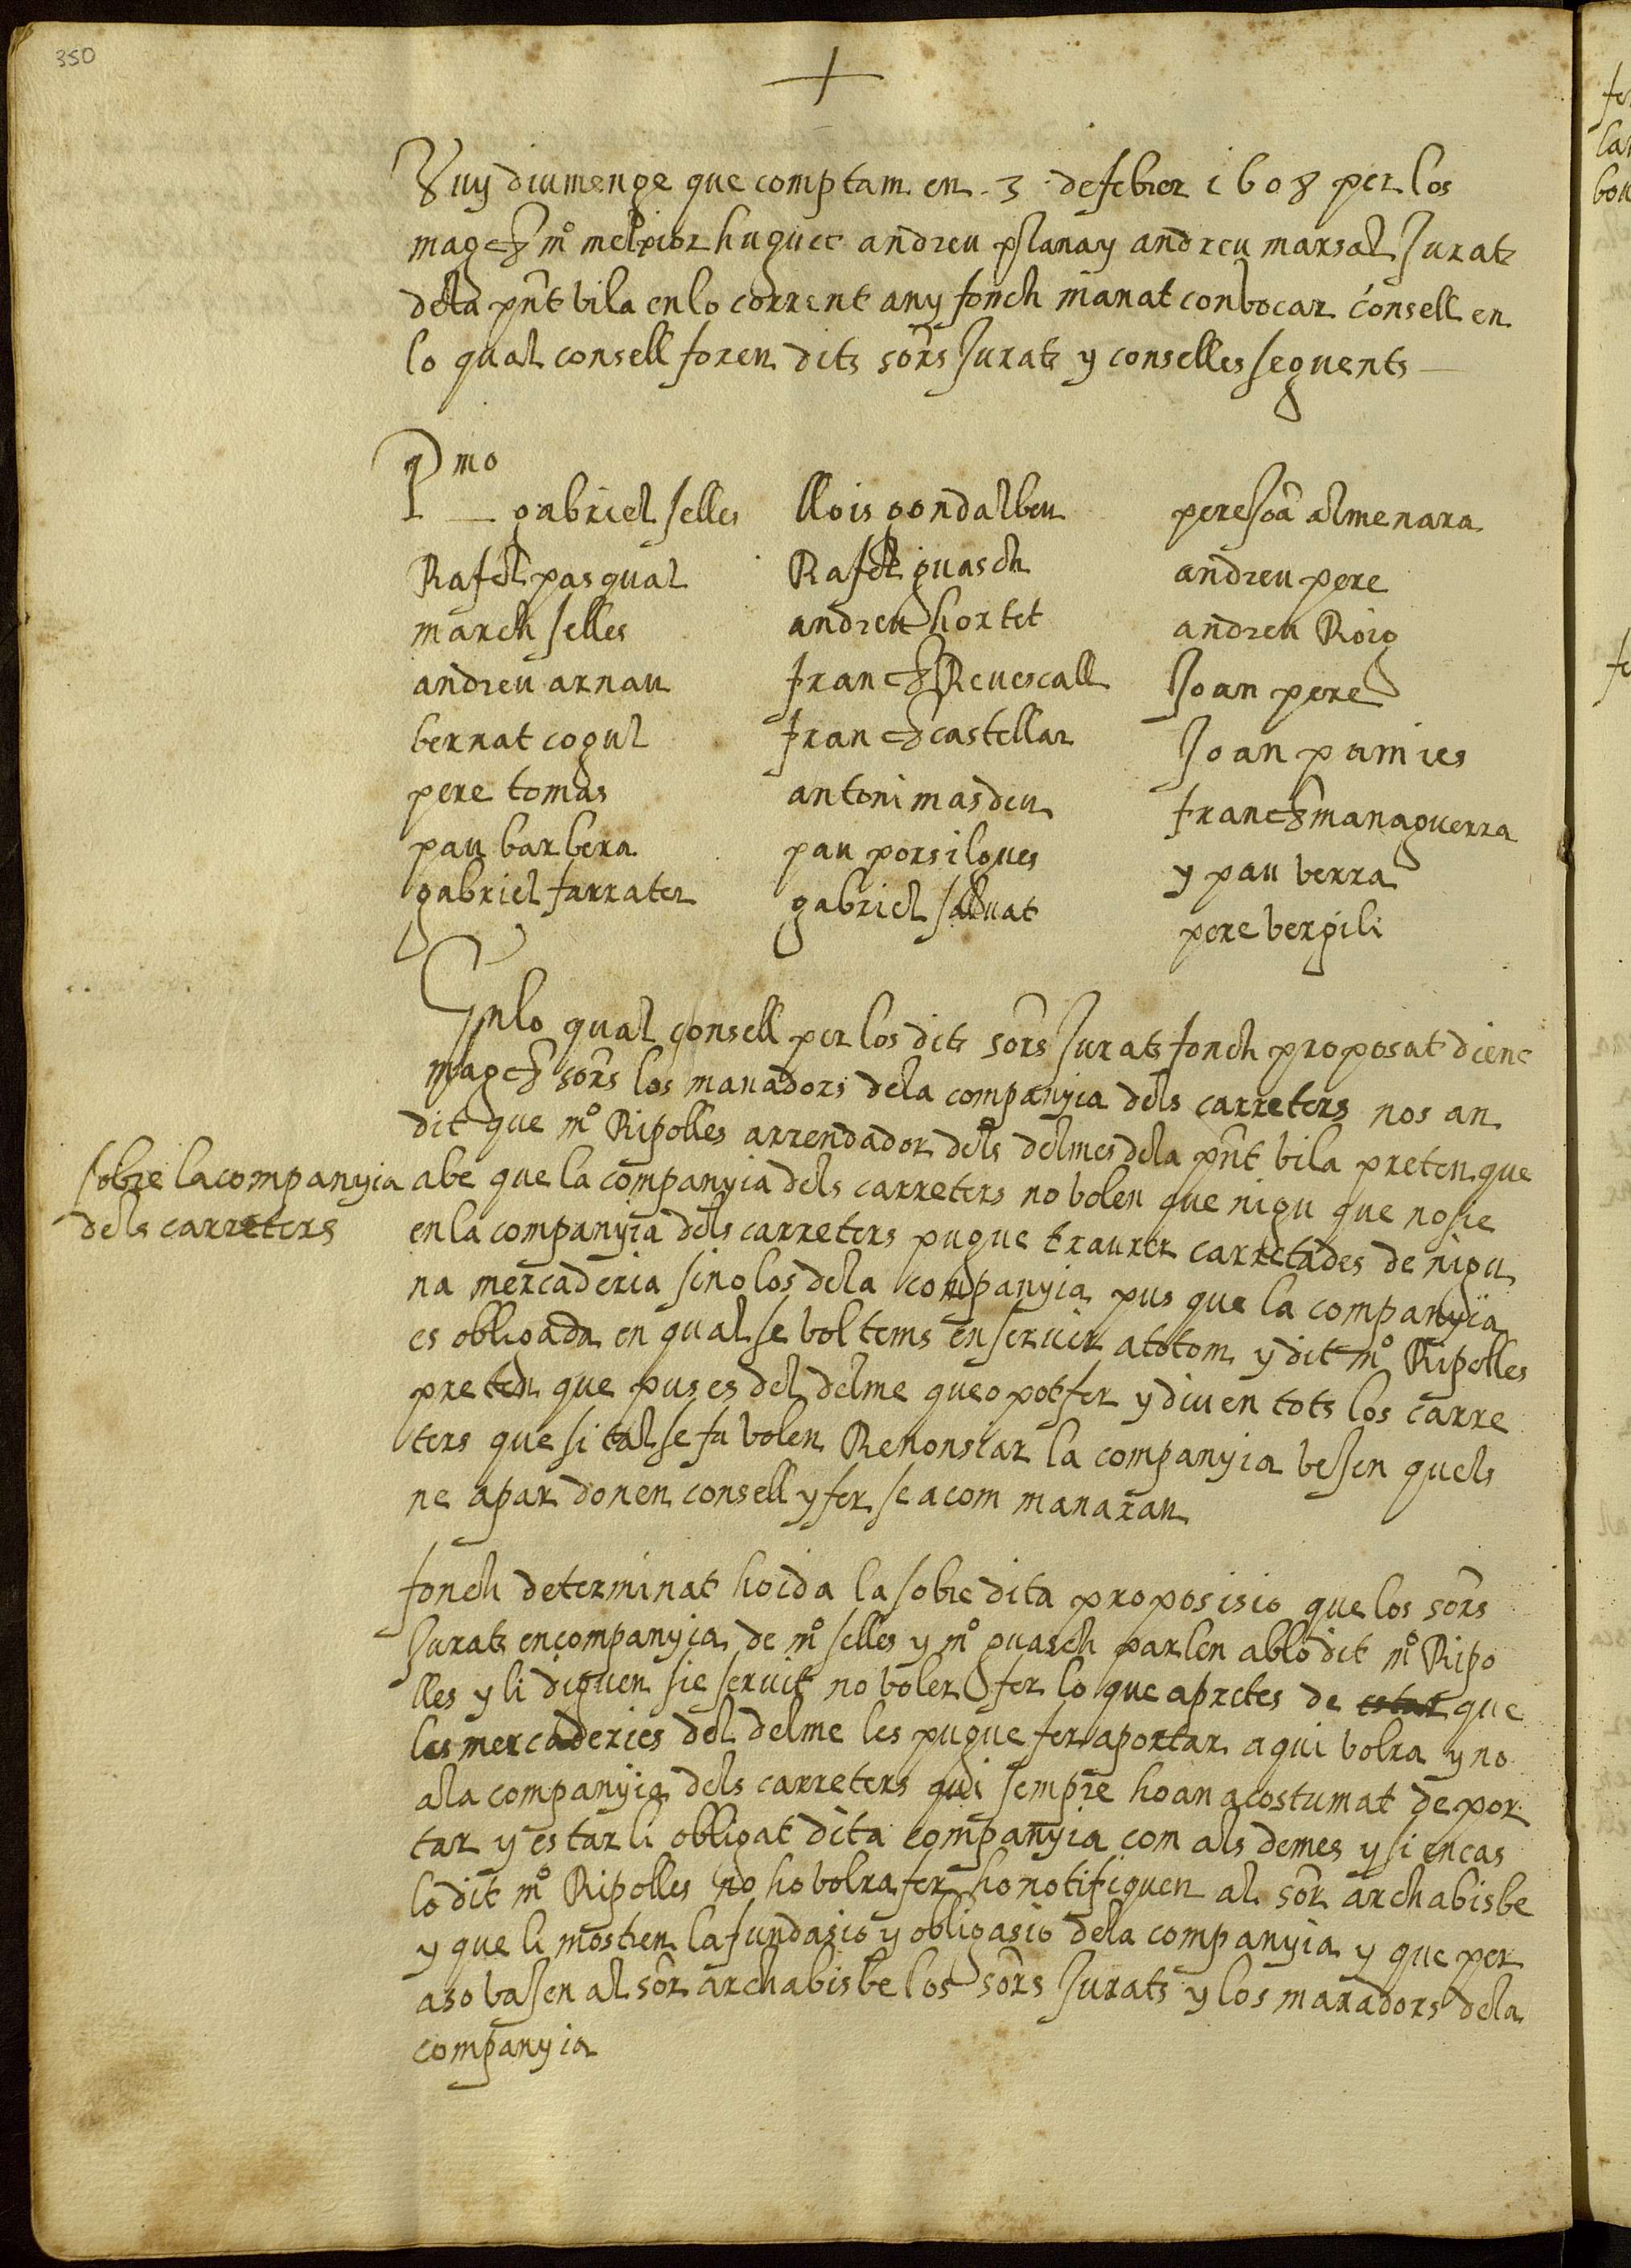 350
+
Vuy diumenge que comptam en 3 de febrer 1608 per los
magchs mº melpior huguet andreu plana y andreu marsal Jurats
dela pnt vila en lo corrent any fonch manat convocar consell en
lo qual consell foren dits sors Jurats y conselles seguents
Pmo
gabriel selles llois gondalbeu pere Joã almenara
Rafel pasqual Rafel guasch andreu pere
march selles andreu hortet andreu Roig
andreu arnau franch Revescall Joan pere
bernat cogul franch castellar Joan pamies
pere tomas antoni masdeu franch managuerra
pau barbera pau porsilgues y pau verra
gabriel farrater gabriel salvat pere vergili
En lo qual consell per los dits sors Jurats fonch proposat dient
magch sors los manadors dela companyia dels carreters nos an
dit que mº Ripolles arrendador dels delmes dela pnt vila preten que
sobre la companyia
dels carreters
abe que la companyia dels carreters no volen que nigu que no sie
en la companyia dels carreters pugue traurer carretades de nigu
na mercaderia sino los dela companyia pus que la companyia
es obligada en qual se vol tems en servir a totom y dit mº Ripolles
preten que pus es del delme que o pot fer y diuen tots los carre
ters que si tal se fa volen Renonsiar la companyia vesen quels
ne apar donen consell y fer sea com manaran
fonch determinat hoida la sobre dita proposisio que los sors
Jurats en companyia de mº selles y mº guasch parlen ab lo dit mº Ripo
lles y li diguen sie servit no voler fer lo que apretes de estar que
les mercaderies del delme les pugue fer aportar a qui volra y no
ala companyia dels carreters qui sempre ho an acostumat de por
tar y estar li obligat dita companyia com als demes y si en cas
lo dit mº Ripolles no ho volra fer ho notifiquen al sor archabisbe
y que li mostren la fundasio y obligasio dela companyia y que per
aso vasen al sor archabisbe los sors Jurats y los manadors dela
companyia